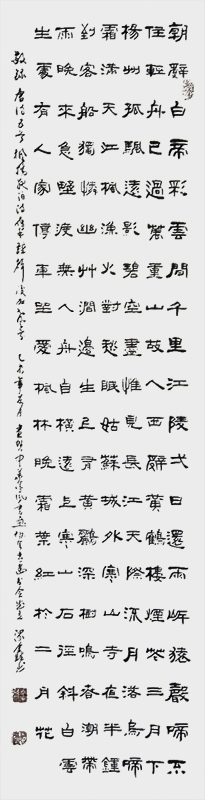 朝辭白帝彩雲間千里江陵弌日還兩岸猿聲啼不
住輕舟已過萬重山故人西辭黃鶴樓煙花三月下
楊州孤帆遠影碧空盡惟見長江天際流月落烏啼
霜滿天江楓漁火對愁眠姑蘇城外寒山寺夜半鍾
到客船獨憐幽草澗邊生上有黃鸝深樹鳴春潮帶
雨晚來急野渡無人舟自橫遠上寒山石徑斜白雲
生處有人家停車坐愛楓林晚霜葉紅於二月花
敬録唐詩五首楓橋夜泊